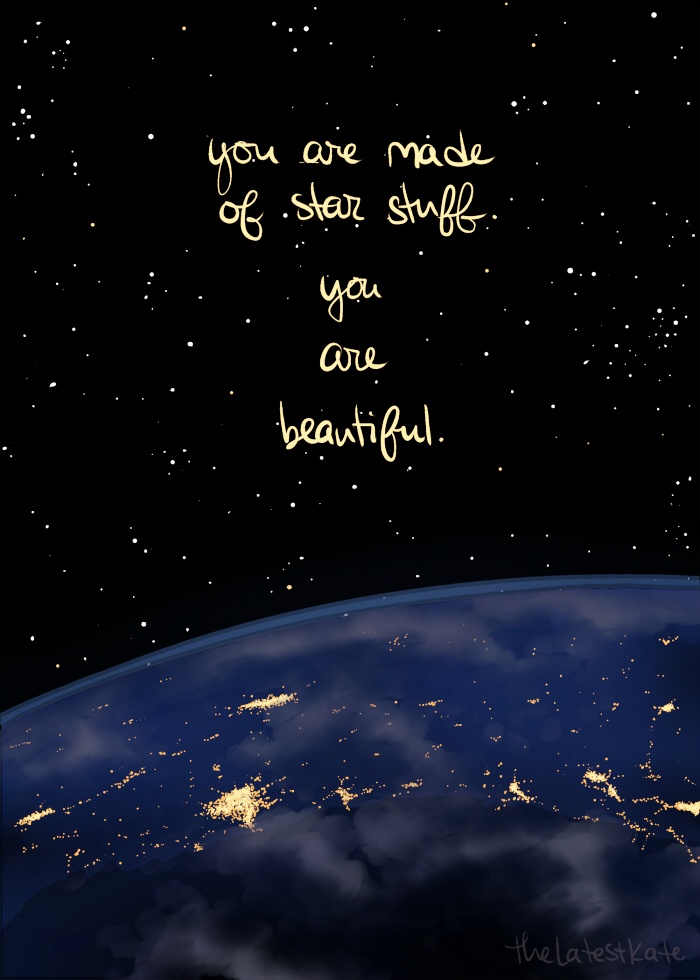 you are made
of star stuff.
you
are
beautiful.
thelatestkate